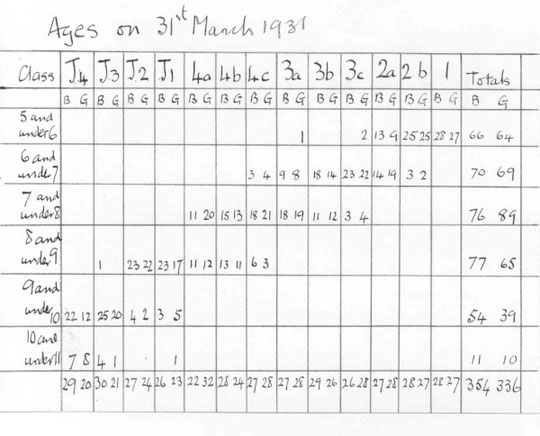 Ages on 31st March 1931
Class J4 J3 J2 J1 4a 4b 4c 3a 3b 3c 2a 2b 1 Totals
B G B G B G B G B G B G B G B G B G B G B G B G B G B G
5 and
under 6 1 2 13 9 25 25 28 27 66 64
6 and
under 7 3 4 9 8 18 14 23 22 14 19 3 2 70 69
7 and
under 8 11 20 15 13 18 21 18 19 11 12 3 4 76 89
8 and
under 9 1 23 22 23 17 11 12 13 11 6 3 77 65
9 and
under 10 22 12 25 20 4 2 3 5 54 39
10 and
under 11 7 8 4 1 1 11 10
29 20 30 21 27 24 26 23 22 32 28 24 27 28 27 28 29 26 26 28 27 28 28 27 28 27 354 336